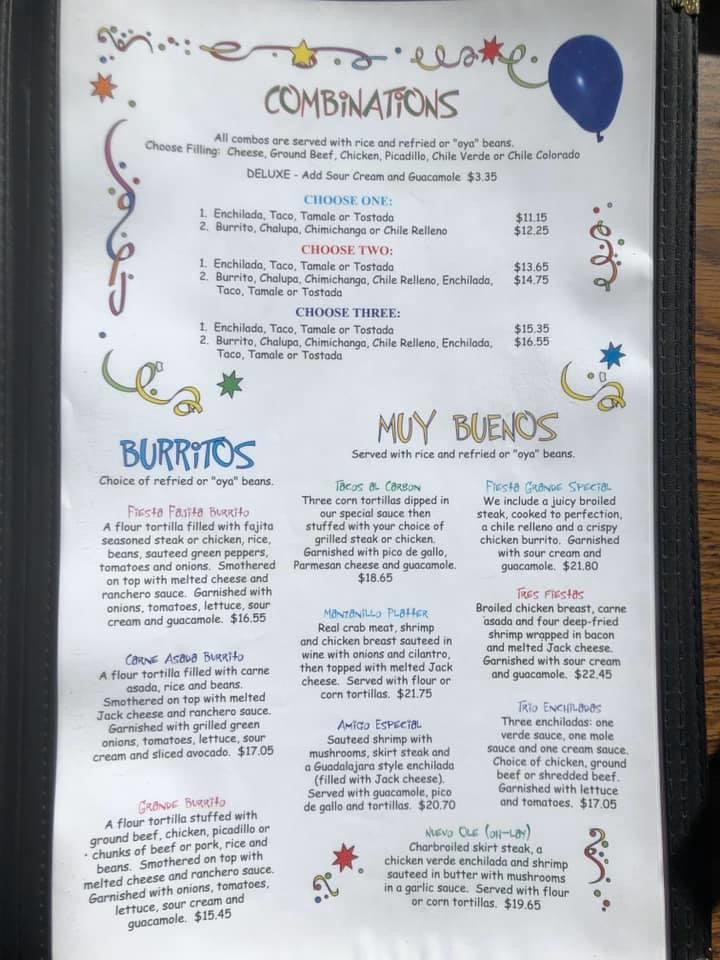 COMBINATIONS
All combos are served with rice and refried or "oya" beans.
Choose Filling: Cheese, Ground Beef, Chicken, Picadillo, Chile Verde or Chile Colorado
DELUXE - Add Sour Cream and Guacamole $3.35
CHOOSE ONE:
1. Enchilada, Taco, Tamale or Tostada $11.15
2. Burrito, Chalupa, Chimichanga or Chile Relleno $12.25
CHOOSE TWO:
1. Enchilada, Taco, Tamale or Tostada $13.65
2. Burrito, Chalupa, Chimichanga, Chile Relleno, Enchilada, $14.75
Taco, Tamale or Tostada
CHOOSE THREE:
1. Enchilada, Taco, Tamale or Tostada $15.35
2. Burrito, Chalupa, Chimichanga, Chile Relleno, Enchilada, $16.55
Taco, Tamale or Tostada
BURRITOS
Choice of refried or "oya" beans.
Fiesta Fajita Burrito
A flour tortilla filled with fajita
seasoned steak or chicken, rice,
beans, sauteed green peppers,
tomatoes and onions. Smothered
on top with melted cheese and
ranchero sauce. Garnished with
onions, tomatoes, lettuce, sour
cream and guacamole. $16.55
Carne Asada Burrito
A flour tortilla filled with carne
asada, rice and beans.
Smothered on top with melted
Jack cheese and ranchero sauce.
Garnished with grilled green
onions, tomatoes, lettuce, sour
cream and sliced avocado. $17.05
Grande Burrito
A flour tortilla stuffed with
ground beef, chicken, picadillo or
chunks of beef or pork, rice and
beans. Smothered on top with
melted cheese and ranchero sauce.
Garnished with onions, tomatoes,
lettuce, sour cream and
guacamole. $15.45
MUY BUENOS
Served with rice and refried or "oya" beans.
Tacos al Carbon
Three corn tortillas dipped in
our special sauce then
stuffed with your choice of
grilled steak or chicken.
Garnished with pico de gallo,
Parmesan cheese and guacamole.
$18.65
Manzanillo Platter
Real crab meat, shrimp
and chicken breast sauteed in
wine with onions and cilantro,
then topped with melted Jack
cheese. Served with flour or
corn tortillas. $21.75
Amigo Especial
Sauteed shrimp with
mushrooms, skirt steak and
a Guadalajara style enchilada
(filled with Jack cheese).
Served with guacamole, pico
de gallo and tortillas. $20.70
Fiesta Grande Special
We include a juicy broiled
steak, cooked to perfection,
a chile relleno and a crispy
chicken burrito. Garnished
with sour cream and
guacamole. $21.80
Tres Fiestas
Broiled chicken breast, carne
asada and four deep-fried
shrimp wrapped in bacon
and melted Jack cheese.
Garnished with sour cream
and guacamole. $22.45
Trio Enchiladas
Three enchiladas: one
verde sauce, one mole
sauce and one cream sauce.
Choice of chicken, ground
beef or shredded beef.
Garnished with lettuce
and tomatoes. $17.05
Nuevo Ole (oh-lay)
Charbroiled skirt steak, a
chicken verde enchilada and shrimp
sauteed in butter with mushrooms
in a garlic sauce. Served with flour
or corn tortillas. $19.65